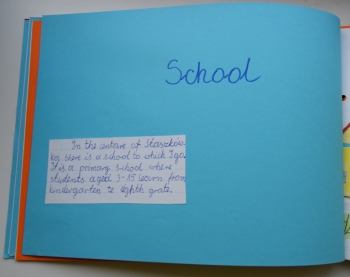 School
In the centare of Staszków
ka there is a school to which I go.
It is a primary school where
students aged 3-15 learn from
kindergarten to eighth grate.